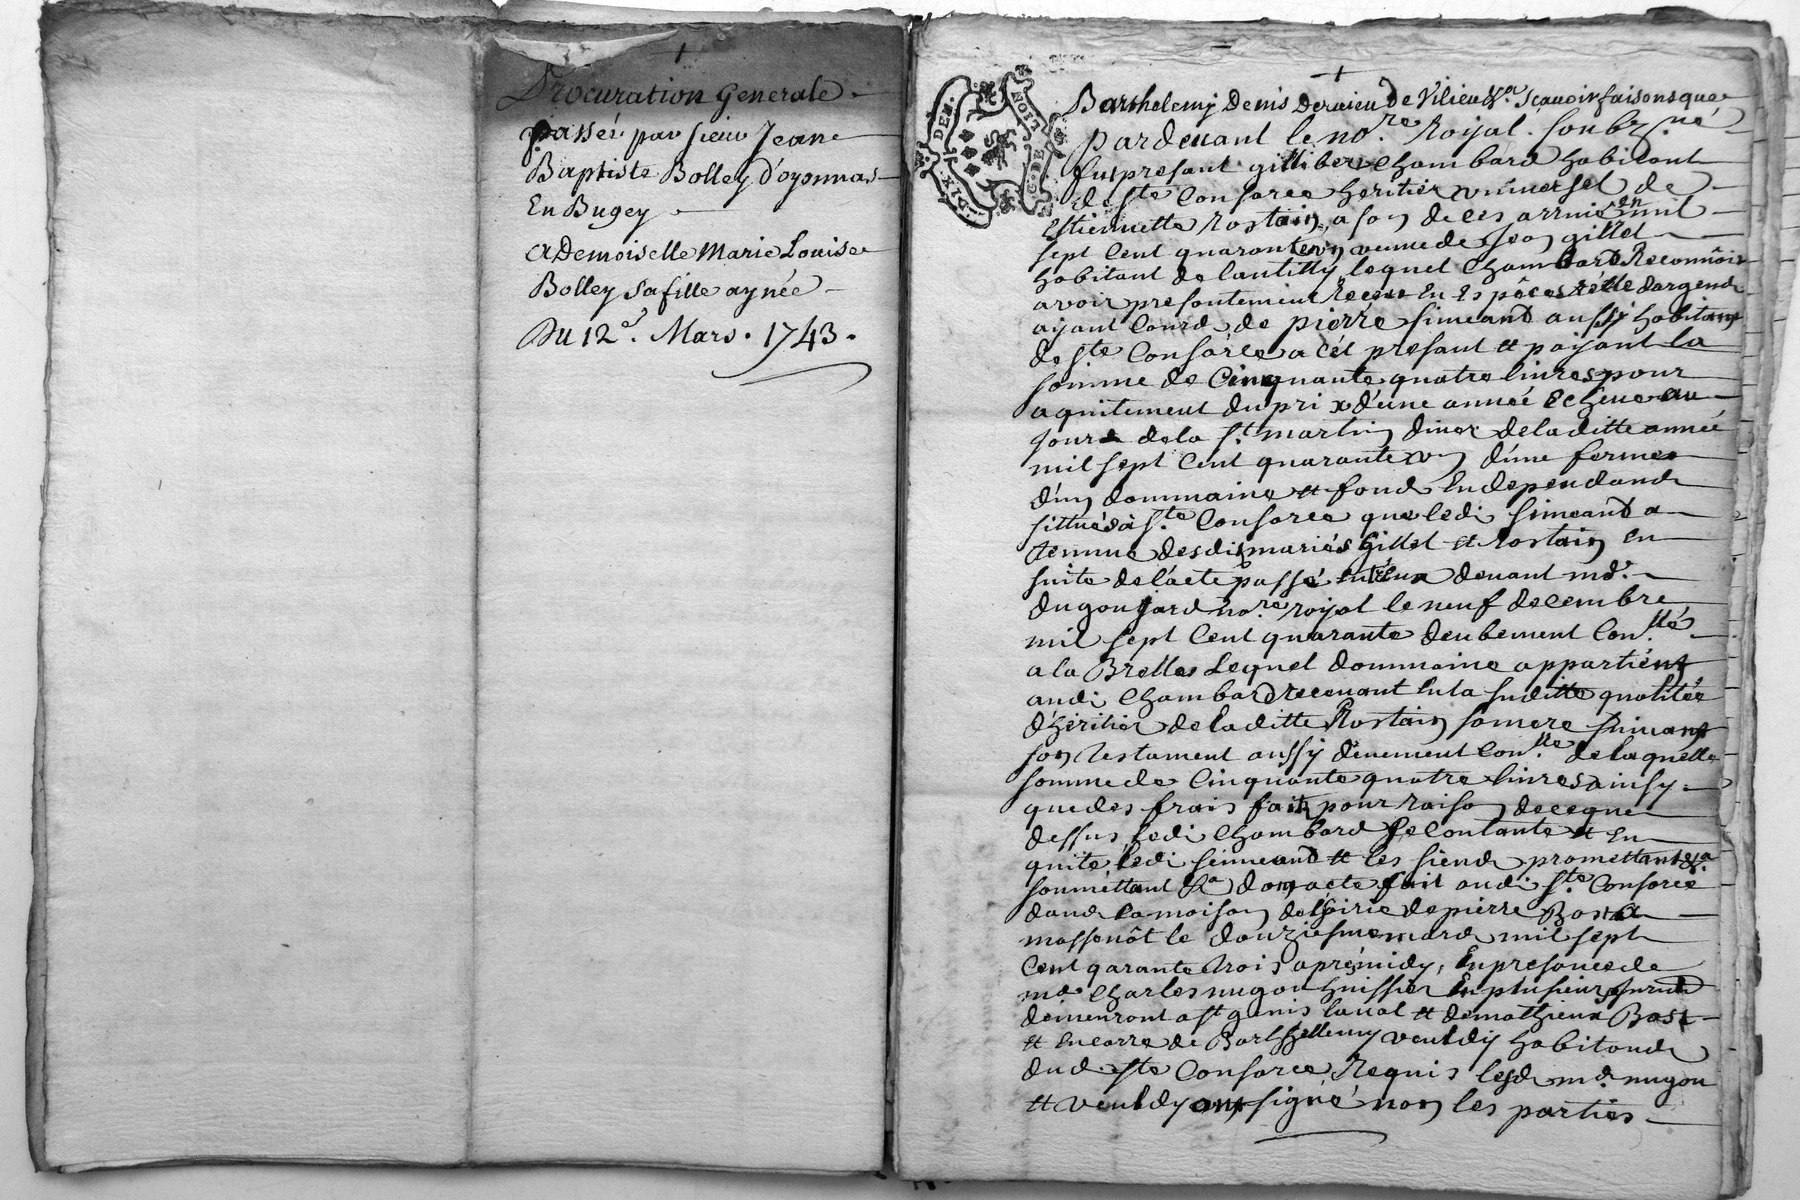 Procuration Generale
passée par sieur Jean
Baptiste Bolley d'oyonnas
En Bugey
a Demoiselle Marie Louise
Bolley sa fille aynée
Du 12e. Mars. 1743.
GDE LION
DIX DEN.
Barthelemy Denis Dervieu De Vilieu &a. Scavoir faisons que
pardevant le no.re Royal soubz.né
fut presant gillibert Chambard habitant
de Ste Consorce heritier universel de
Estiennette Rostain a son deces arrivé en mil
sept Cent quarante un veuve de Jean gillet
habitant de lantilly lequel Chambard Reconnoit
avoir presentement Receu En Espèces réelle dargend
ayant Courd de pierre simeand aussy habitant
de Ste Consorce a cét presant et payant la
somme de Cinquante quatre livres pour
aquitement du prix d'une année Echeue au
jour de la St martin diver de la ditte année
mil sept Cent quarante un d'une ferme
d'un dommaine et fond En dependand
sittués à Ste Consorce que ledi simeand a
tenue desdis mariés Gillet et Rostain en
suite de lacte passé entreux devant md.
dugoujard no.re royal le neuf decembre
mil sept Cent quarante deubement Con.llé
a la Brelles Lequel dommaine appartient
audi Chambard recevant en la suditte qualitée
d'heritier de laditte Rostain sa mere suivant
son testament aussy duement Con.llé de laquelle
somme de Cinquante quatre livres ainsy
que des frais fait pour raison de ce que
dessus ledi Chambard se Contante et en
quite ledi simeand et les siend promettant &a.
soumettant &a dont acte fait audi Ste Consorce
dand la maison de hoirie de pierre Bost
massenôt le douziesme mard mil sept
Cent quarante trois aprémidy, En presance de
md. Charles nugou huissier En plusieur jurid
demeurant a St genis laval et de mathieux Bost
et Encorre de Barthellemy veuldy habitand
dud. Ste Consorce Requis lesd md. nugou
et veuldy ont signé non les parties